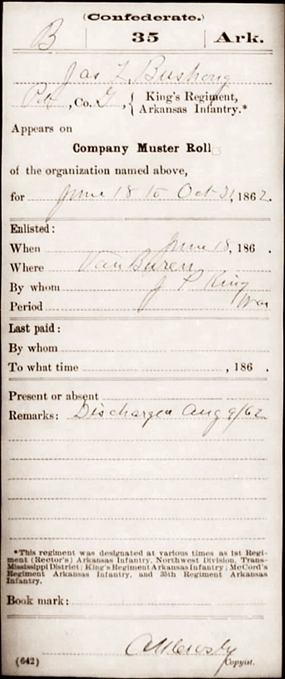 (Confederate.)
B | 35 | Ark.
Jas L Bushong
Pvt, Co. G, { King's Regiment, Arkansas Infantry.*
Appears on
Company Muster Roll
of the organization named above,
for June 18 to Oct 31, 1862.
Enlisted:
When June 18, 186 .
Where Van Buren
By whom J P King
Period War
Last paid:
By whom
To what time , 186 .
Present or absent
Remarks: Discharged Aug 9/62
*This regiment was designated at various times as 1st Regi-
ment (Rector's) Arkansas Infantry, Northwest Division, Trans-
Mississippi District; King's Regiment Arkansas Infantry; McCord's
Regiment Arkansas Infantry, and 35th Regiment Arkansas
Infantry.
Book mark:
(642) Copyist.